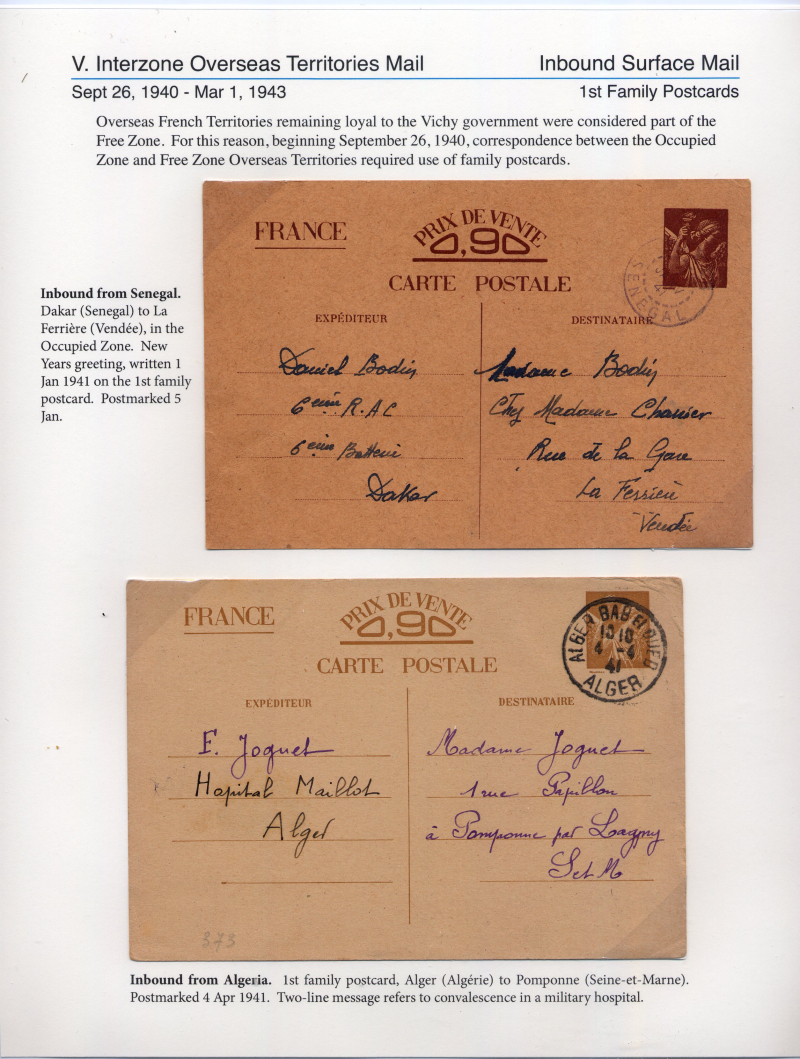 V. Interzone Overseas Territories Mail Inbound Surface Mail
Sept 26, 1940 - Mar 1, 1943 1st Family Postcards
Overseas French Territories remaining loyal to the Vichy government were considered part of the
Free Zone. For this reason, beginning September 26, 1940, correspondence between the Occupied
Zone and Free Zone Overseas Territories required use of family postcards.
Inbound from Senegal.
Dakar (Senegal) to La
Ferrière (Vendée), in the
Occupied Zone. New
Years greeting, written 1
Jan 1941 on the 1st family
postcard. Postmarked 5
Jan.
FRANCE
PRIX DE VENTE
0,90
CARTE POSTALE
SENEGAL
EXPÉDITEUR
Daniel Bodin
6eme R.A.C
6eme Batterie
Dakar
DESTINATAIRE
Madame Bodin
Chez Madame
Rue de la Gare
La Ferrière
Vendée
FRANCE
PRIX DE VENTE
0,90
CARTE POSTALE
ALGER BAB EL OUED
1010
4 -4
41
ALGER
EXPÉDITEUR
F. Joguet
Hopital Maillot
Alger
DESTINATAIRE
Madame Joguet
1 rue Papillon
à Pomponne par Lagny
S et M
373
Inbound from Algeria. 1st family postcard, Alger (Algérie) to Pomponne (Seine-et-Marne).
Postmarked 4 Apr 1941. Two-line message refers to convalescence in a military hospital.